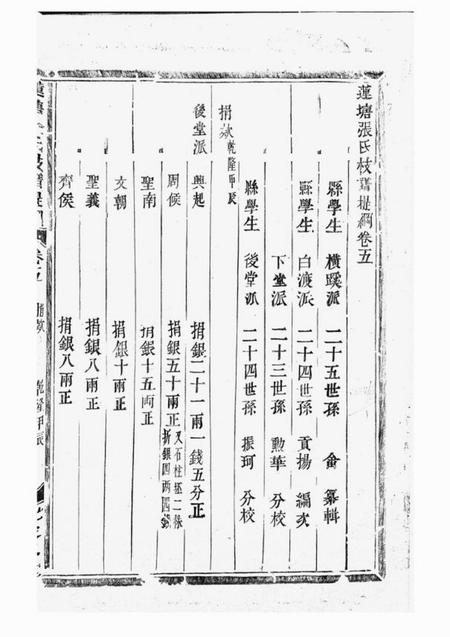 蓮塘張氏枝譜提綱卷五
縣學生 橫蹊派 二十五世孫 侖 纂輯
縣學生 白渡派 二十四世孫 貢揚 編次
下堂派 二十三世孫 勲華 分校
縣學生 後堂派 二十四世孫 振珂 分校
捐欵 乾隆甲辰
後堂派 興起 捐銀二十一兩一錢五分正
周侯 捐銀五十兩正 又石柱 二條 折銀四兩四錢
聖南 捐銀十五両正
文朝 捐銀十兩正
聖義 捐銀八兩正
齊侯 捐銀八兩正